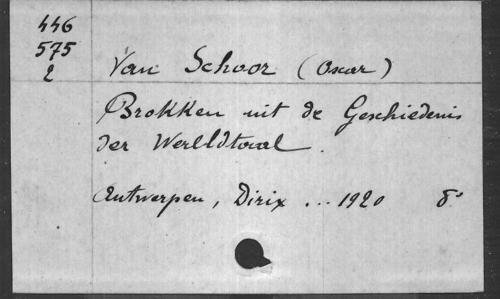 446
575
2
Van Schoor (Oscar)
Brokken uit de Geschiedenis
der Werelldtaal.
Antwerpen, Dirix ... 1920 8°